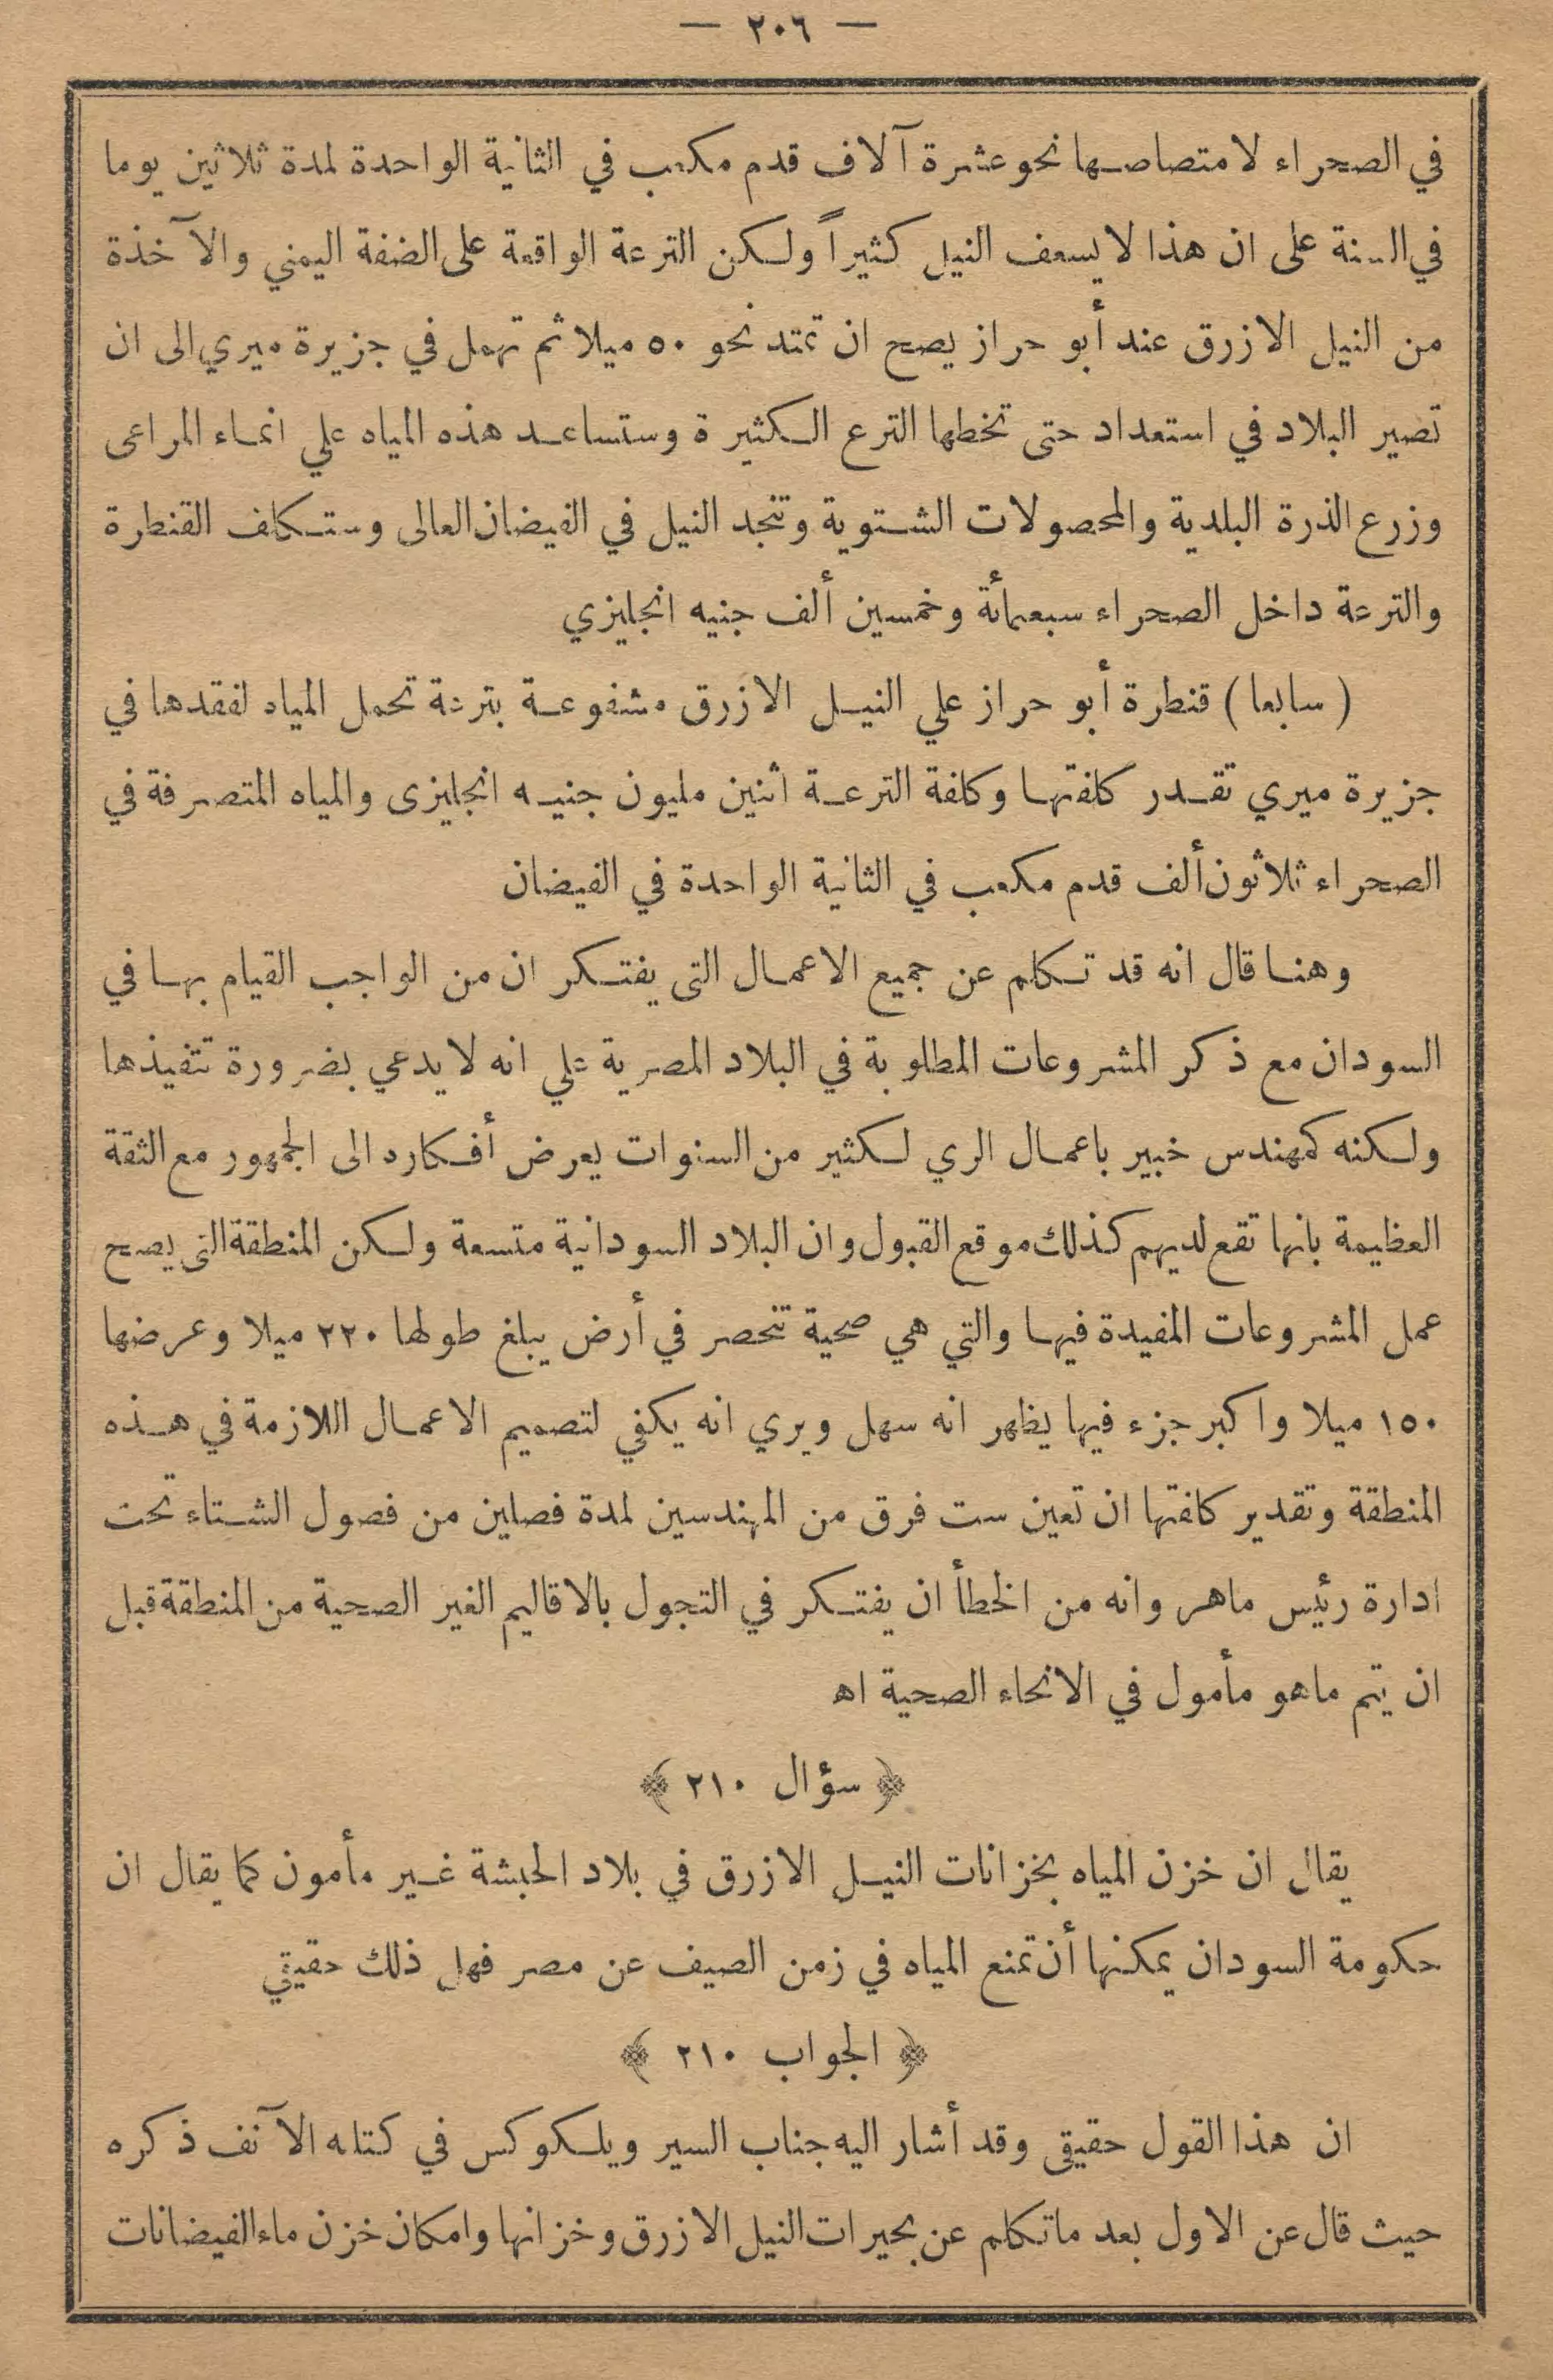 — ٢٠٦ —
في الصحراء لامتصاصها نحو عشرة آلاف قدم مكعب في الثانية الواحدة لمدة ثلاثين يوما
في السنة على ان هذا لا يسعف النيل كثيراً ولكن الترعة الواقعة على الضفة اليمني والآخذة
من النيل الازرق عند أبو حراز يصح ان تمتد نحو ٥٠ ميلا ثم تهمل في جزيرة ميري الى ان
تصير البلاد في استعداد حتى تخطها الترع الكثيرة وستساعد هذه المياه علي انماء المراعى
وزرع الذرة البلدية والمحصولات الشتوية وتنجد النيل في الفيضان العالى وستكلف القنطرة
والترعة داخل الصحراء سبعمائة وخمسين ألف جنيه انجليزي
( سابعا ) قنطرة أبو حراز علي النيل الازرق مشفوعة بترعة تحمل المياه لفقدها في
جزيرة ميري تقدر كلفتها وكلفة الترعة اثنين مليون جنيه انجليزى والمياه المتصرفة في
الصحراء ثلاثون ألف قدم مكعب في الثانية الواحدة في الفيضان
وهنا قال انه قد تكلم عن جميع الاعمال التى يفتكر ان من الواجب القيام بها في
السودان مع ذكر المشروعات المطلوبة في البلاد المصرية علي انه لا يدعي بضرورة تنفيذها
ولكنه كمهندس خبير باعمال الري لكثير من السنوات يعرض أفكاره الى الجمهور مع الثقة
العظيمة بانها تقع لديهم كذلك موقع القبول وان البلاد السودانية متسعة ولكن المنطقة التى يصح
عمل المشروعات المفيدة فيها والتي هي صحية تنحصر في أرض يبلغ طولها ٢٢٠ ميلا وعرضها
١٥٠ ميلا واكبر جزء فيها يظهر انه سهل ويري انه يكفي لتصميم الاعمال اللازمة في هذه
المنطقة وتقدير كلفتها ان تعين ست فرق من المهندسين لمدة فصلين من فصول الشتاء تحت
ادارة رئيس ماهر وانه من الخطأ ان يفتكر في التجول بالاقاليم الغير الصحية من المنطقة قبل
ان يتم ماهو مأمول في الانحاء الصحية اه
﴿ سؤال ٢١٠ ﴾
يقال ان خزن المياه بخزانات النيل الازرق في بلاد الحبشة غير مأمون كما يقال ان
حكومة السودان يمكنها أن تمنع المياه في زمن الصيف عن مصر فهل ذلك حقيقي
﴿ الجواب ٢١٠ ﴾
ان هذا القول حقيقى وقد أشار اليه جناب السير ويلكوكس في كتابه الآنف ذكره
حيث قال عن الاول بعد ماتكلم عن بحيرات النيل الازرق وخزانها وامكان خزن ماء الفيضانات